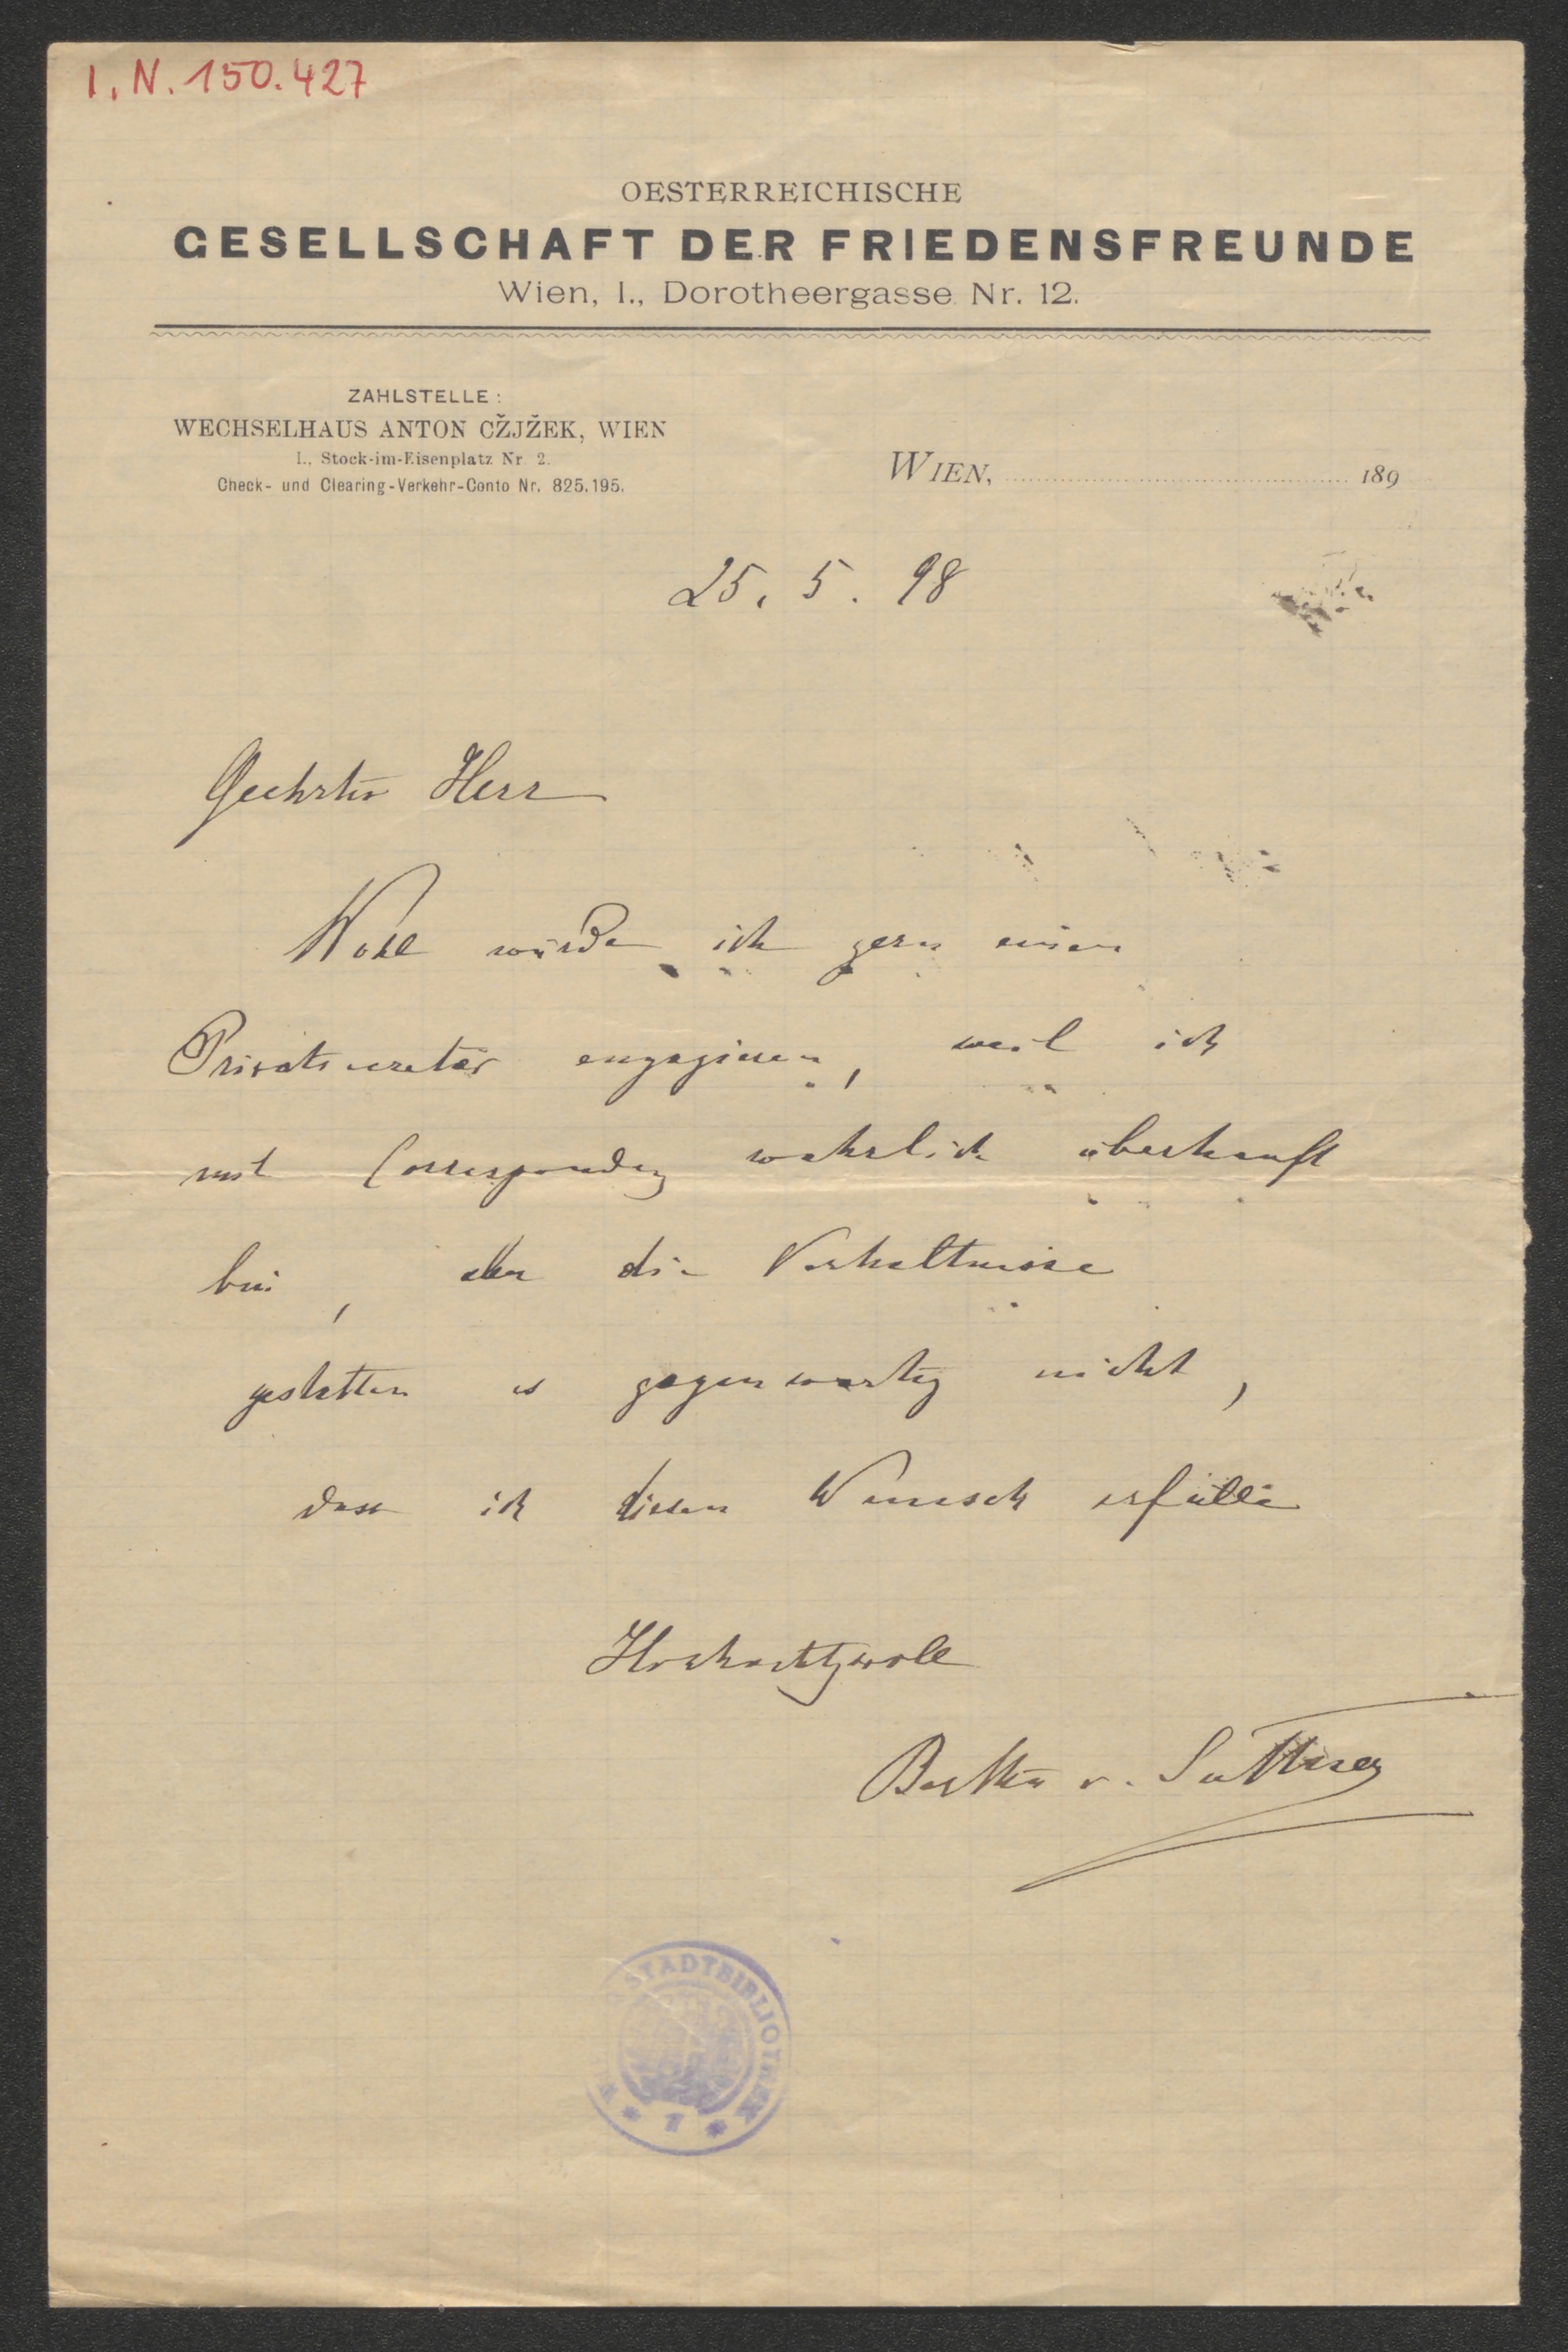 I. N. 150.427
OESTERREICHISCHE
GESELLSCHAFT DER FRIEDENSFREUNDE
Wien, I., Dorotheergasse Nr. 12.
ZAHLSTELLE:
WECHSELHAUS ANTON CŽJŽEK, WIEN
I., Stock-im-Eisenplatz Nr. 2.
Check- und Clearing-Verkehr-Conto Nr. 825.195.
WIEN, 189
25. 5. 98
Geehrter Herr
Wohl würde ich gern einen
Privatsecretär engagieren, weil ich
mit Correspondenz wahrlich überhäuft
bin, aber die Verhältnisse
gestatten es gegenwärtig nicht,
dass ich diesen Wunsch erfülle
Hochachtungsvoll
Bertha v. Suttner
STADTBIBLIOTHEK
* 7 *